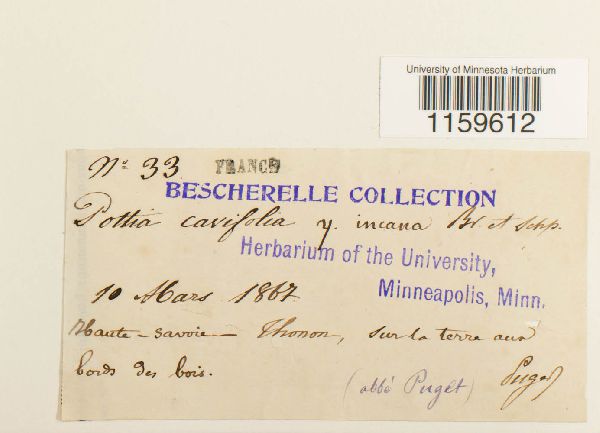 University of Minnesota Herbarium
1159612
Nº 33 FRANCE
BESCHERELLE COLLECTION
Pottia cavifolia γ. incana Br. et Schp.
Herbarium of the University,
Minneapolis, Minn.
10 Mars 1867
Haute-Savoie - Thonon, sur la terre aux
bords des bois.
(abbé Puget) Puget